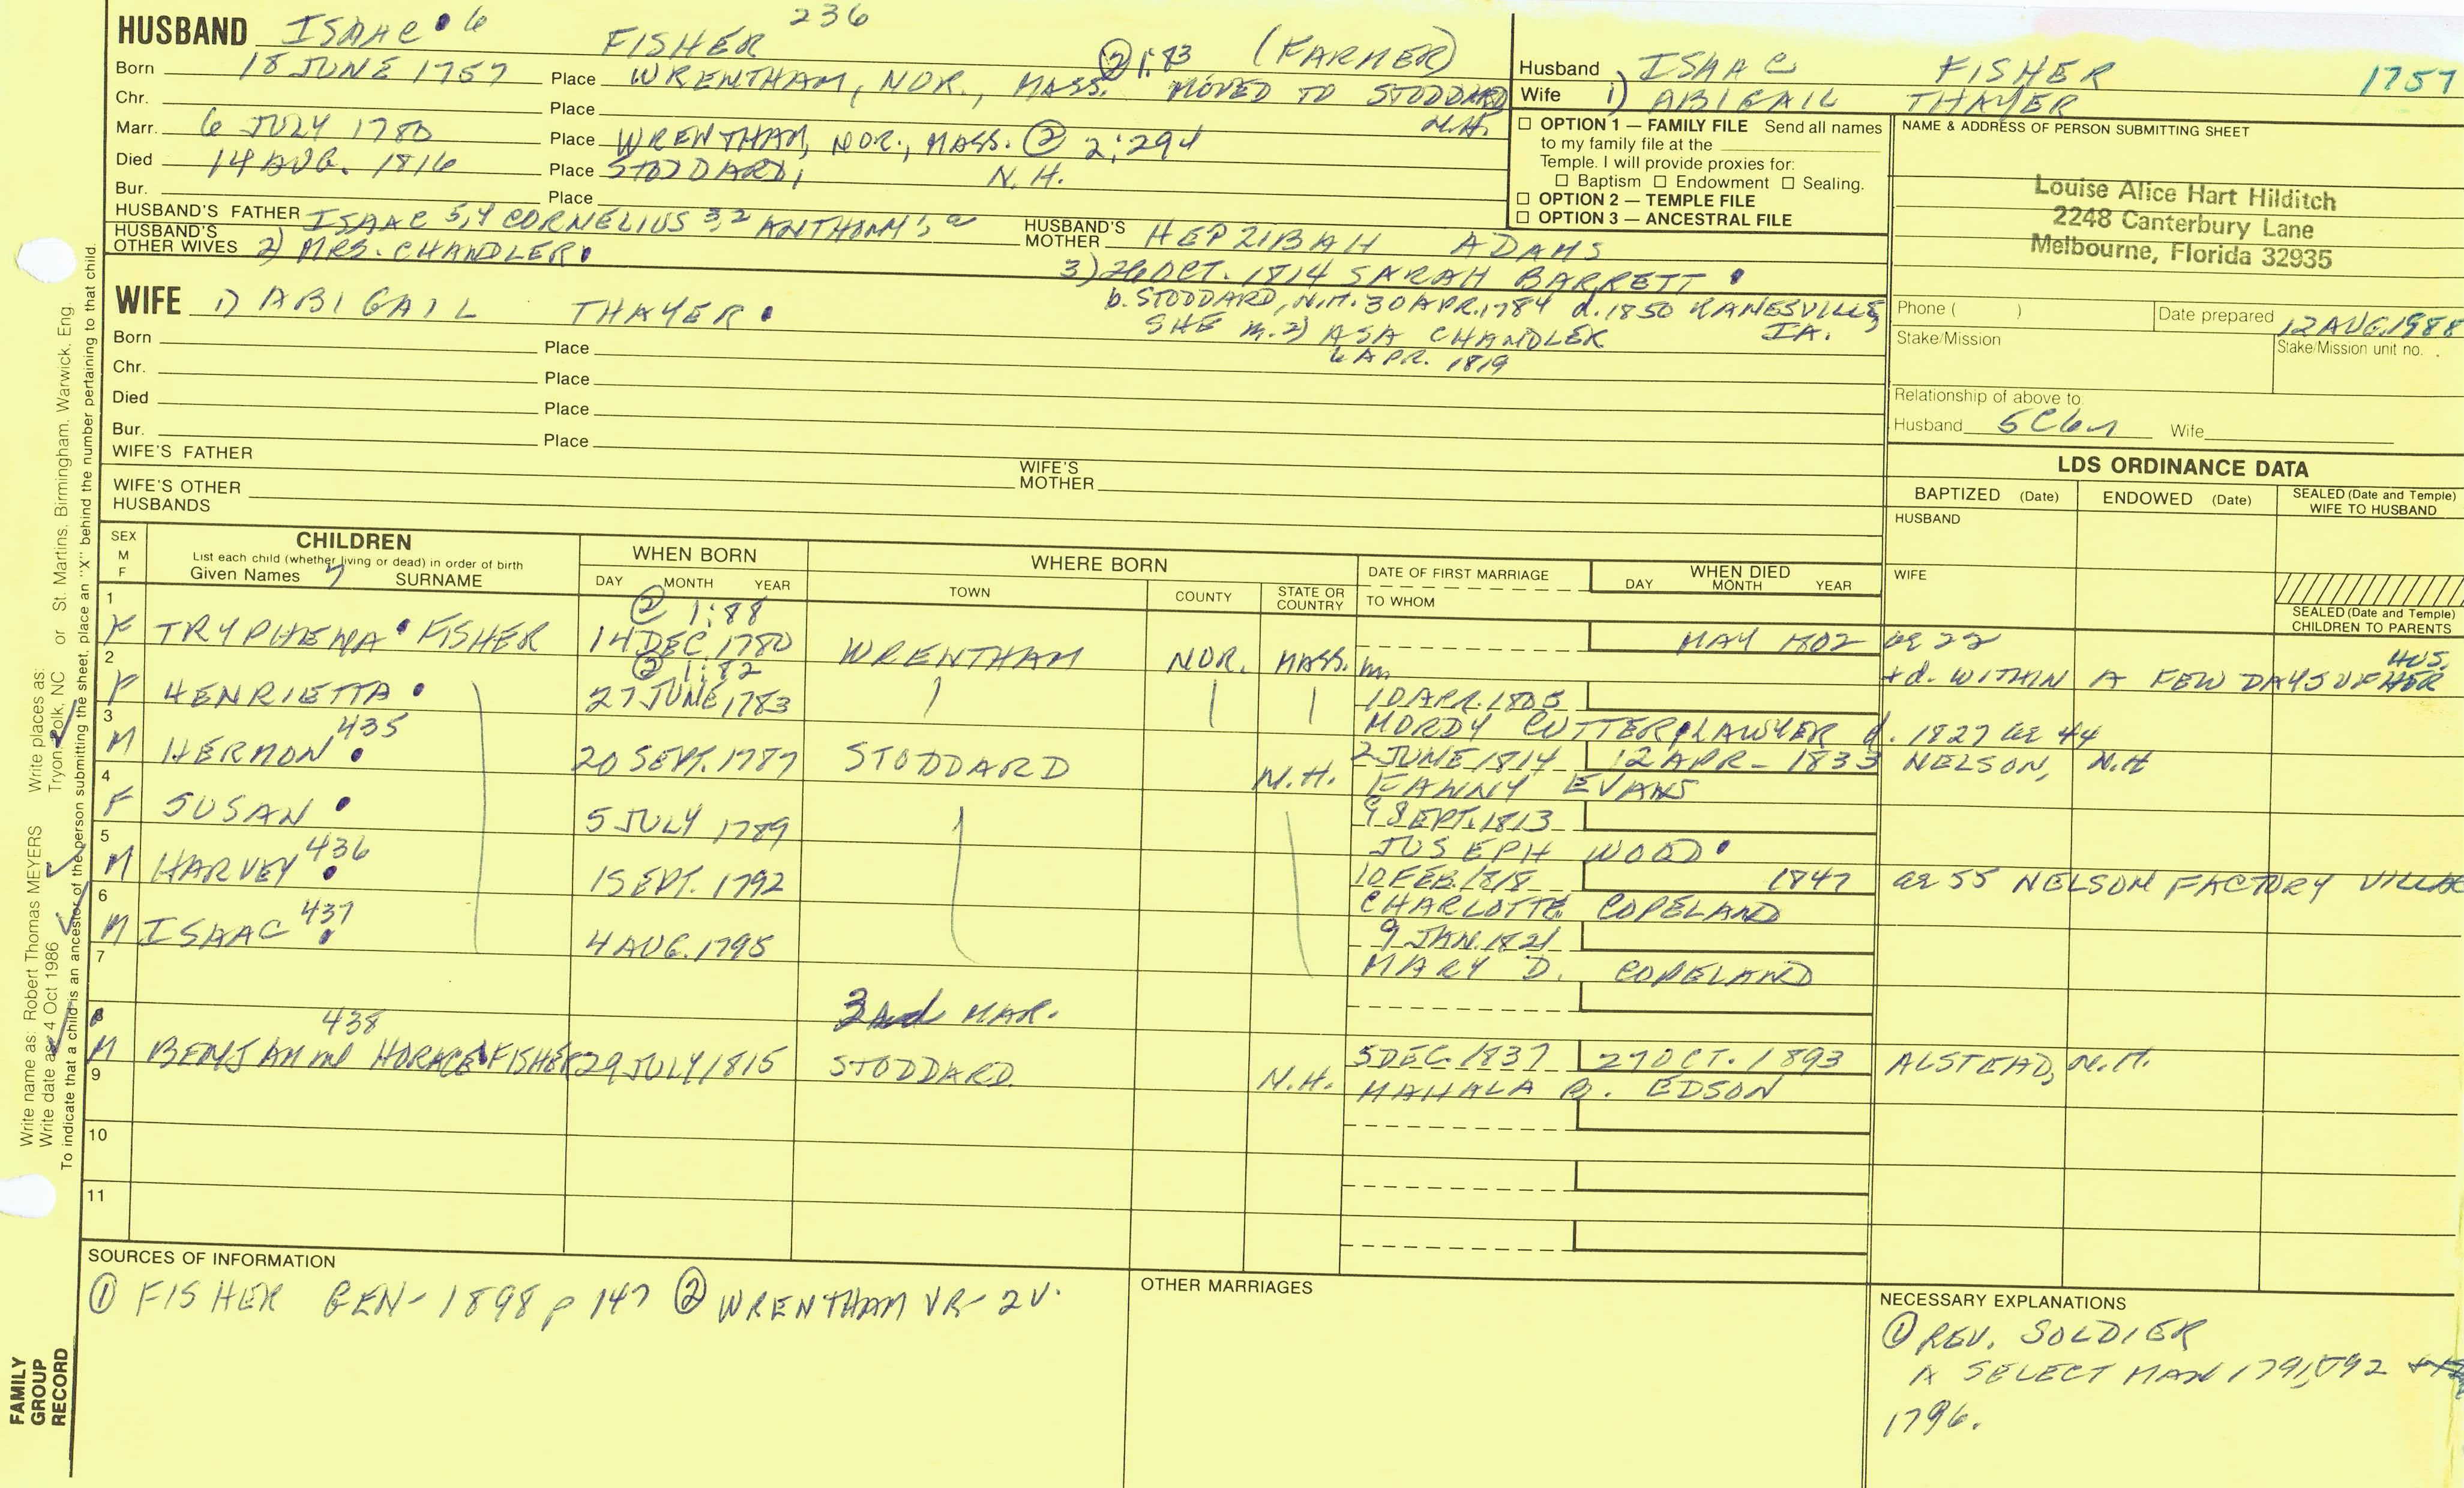 HUSBAND ISAAC 6 FISHER 236
(FARMER)
Born 18 JUNE 1757 Place WRENTHAM, NOR., MASS. ② 1:83 MOVED TO STODDARD N.H.
Chr. Place
Marr. 6 JULY 1780 Place WRENTHAM, NOR., MASS. ② 2:294
Died 14 AUG. 1816 Place STODDARD, N.H.
Bur. Place
HUSBAND'S FATHER ISAAC 5,4 CORNELIUS 3,2 ANTHONY 1, HUSBAND'S MOTHER HEPZIBAH ADAMS
HUSBAND'S OTHER WIVES 2) MRS. CHANDLER
3) 26 OCT. 1814 SARAH BARRETT
b. STODDARD, N.H. 30 APR. 1784 d. 1850 RANESVILLE, IA.
SHE m. 2) ASA CHANDLER
6 APR. 1819
WIFE 1) ABIGAIL THAYER
Born Place
Chr. Place
Died Place
Bur. Place
WIFE'S FATHER WIFE'S MOTHER
WIFE'S OTHER HUSBANDS
Husband ISAAC FISHER 1757
Wife 1) ABIGAIL THAYER
☐ OPTION 1 — FAMILY FILE Send all names
to my family file at the
Temple. I will provide proxies for:
☐ Baptism ☐ Endowment ☐ Sealing.
☐ OPTION 2 — TEMPLE FILE
☐ OPTION 3 — ANCESTRAL FILE
NAME & ADDRESS OF PERSON SUBMITTING SHEET
Louise Alice Hart Hilditch
2248 Canterbury Lane
Melbourne, Florida 32935
Phone ( ) Date prepared 12 AUG. 1988
Stake/Mission Stake/Mission unit no.
Relationship of above to:
Husband 5C6r Wife
LDS ORDINANCE DATA
BAPTIZED (Date) ENDOWED (Date) SEALED (Date and Temple) WIFE TO HUSBAND
HUSBAND
WIFE
SEALED (Date and Temple) CHILDREN TO PARENTS
SEX M F CHILDREN WHEN BORN WHERE BORN DATE OF FIRST MARRIAGE WHEN DIED
List each child (whether living or dead) in order of birth
Given Names 7 SURNAME DAY MONTH YEAR TOWN COUNTY STATE OR COUNTRY TO WHOM DAY MONTH YEAR
② 1:88
1 F TRYPHENA FISHER 14 DEC. 1780 WRENTHAM NOR. MASS. m. MAY 1802 ae 22
+ d. WITHIN A FEW DAYS OF HER HUS.
② 1:82
2 F HENRIETTA 27 JUNE, 1783 10 APR. 1805
MORDY CUTTER, LAWYER d. 1827 ae 44
3 M HERMON 435 20 SEPT. 1787 STODDARD N.H. 2 JUNE 1814 12 APR - 1833 NELSON, N.H
FANNY EVANS
4 F SUSAN 5 JULY 1789 9 SEPT. 1813
JOSEPH WOOD
5 M HARVEY 436 1 SEPT. 1792 10 FEB. 1818 1847 ae 55 NELSON FACTORY VILLAGE
CHARLOTTE COPELAND
6 M ISAAC 437 4 AUG. 1795 9 JAN. 1821
MARY D. COPELAND
7
3rd MAR.
8 M BENJAMIN HORACE FISHER 438 29 JULY 1815 STODDARD N.H. 5 DEC. 1837 27 OCT. 1893 ALSTEAD, N.H.
MAHALA B. EDSON
9
10
11
SOURCES OF INFORMATION
① FISHER GEN - 1898 p 147 ② WRENTHAM VR - 2V.
OTHER MARRIAGES
NECESSARY EXPLANATIONS
① REV. SOLDIER
A SELECT MAN 1791, 1792
1796.
Write name as: Robert Thomas MEYERS Write places as:
Write date as: 4 Oct 1986 Tryon, Polk, NC or St. Martins, Birmingham, Warwick, Eng.
To indicate that a child is an ancestor of the person submitting the sheet, place an "X" behind the number pertaining to that child.
FAMILY
GROUP
RECORD